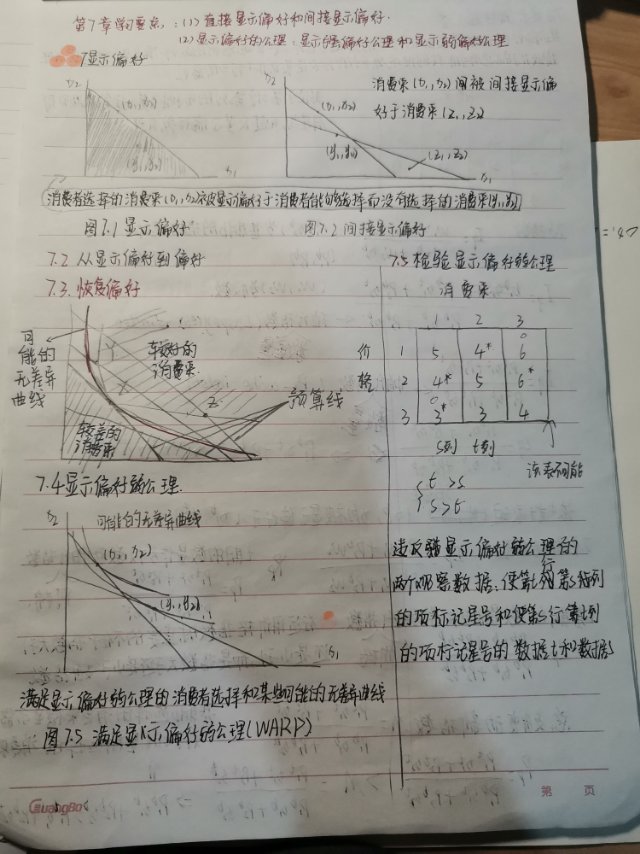 第7章学习要点：(1) 直接显示偏好和间接显示偏好.
(2)显示偏好的公理：显示强偏好公理和显示弱偏好公理
7.1显示偏好
x2
(x1,x2)
(y1,y2)
x1
x2
(x1,x2)
(y1,y2)
(z1,z2)
x1
消费束(x1,x2)间被间接显示偏
好于消费束(z1,z2)
消费者选择的消费束(x1,x2)被显示偏好于消费者能够选择而没有选择的消费束(y1,y2)
图7.1 显示偏好
图7.2 间接显示偏好
7.2 从显示偏好到偏好
7.3. 恢复偏好
可
能的
无差异
曲线
Y
较好的
消费束
X
Z
预算线
较差的
消费束
7.4显示偏好弱公理.
x2
可能的无差异曲线
(x1,x2)
(y1,y2)
x1
满足显示偏好弱公理的消费者选择和某些可能的无差异曲线
图7.5 满足显示偏好弱公理(WARP)
7.5检验显示偏好弱公理
消费束
1 2 3
价 1 5 4* 6
格 2 4* 5 6*
3 3* 3 4
s列 t列
该表不可能
t>s
s>t
违反显示偏好弱公理的
两个观察数据,使第t行第s列
的项标记星号和使第s行第t列
的项标记星号的数据t和数据s
GuangBo
第 页